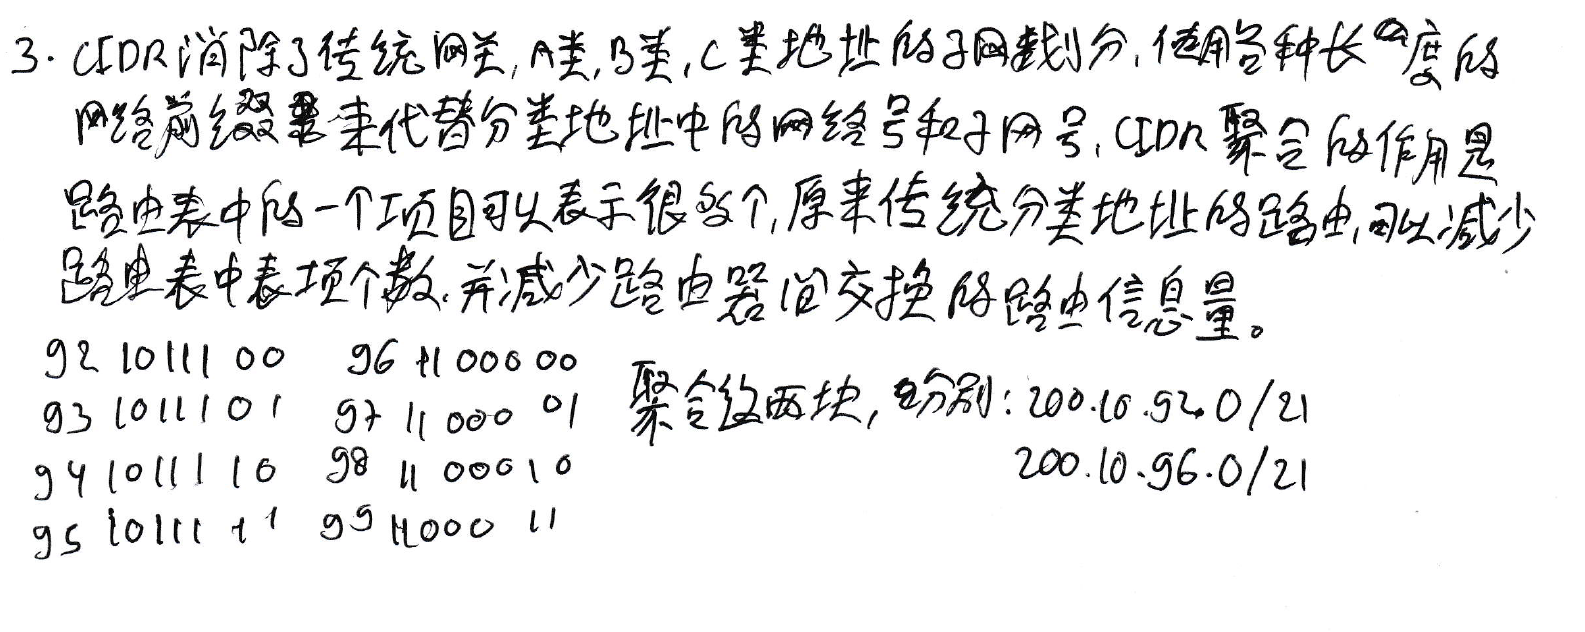 3. CIDR消除了传统网关,A类,B类,C类地址的子网划分,使用各种长度的
网络前缀来代替分类地址中的网络号和子网号,CIDR聚合的作用是
路由表中的一个项目可以表示很多个,原来传统分类地址的路由,可以减少
路由表中表项个数,并减少路由器间交换的路由信息量。
92 1011100 96 1100000
93 1011101 97 1100001 聚合这两块,分别:200.10.92.0/21
94 1011110 98 1100010 200.10.96.0/21
95 1011111 99 1100011